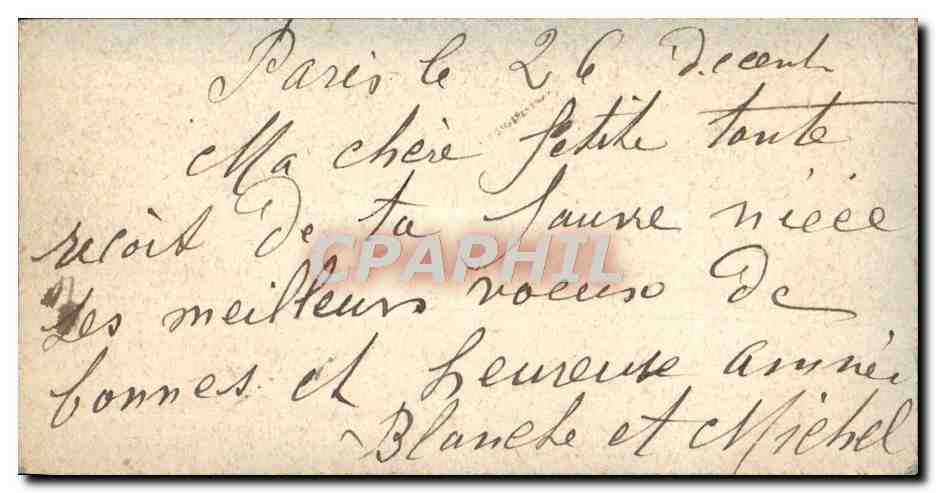 Paris le 26 decemb
Ma chère petite tante
recoit de ta pauvre nièce
CPAPHIL
Les meilleurs voeux de
bonnes et heureuse année
Blanche et Michel